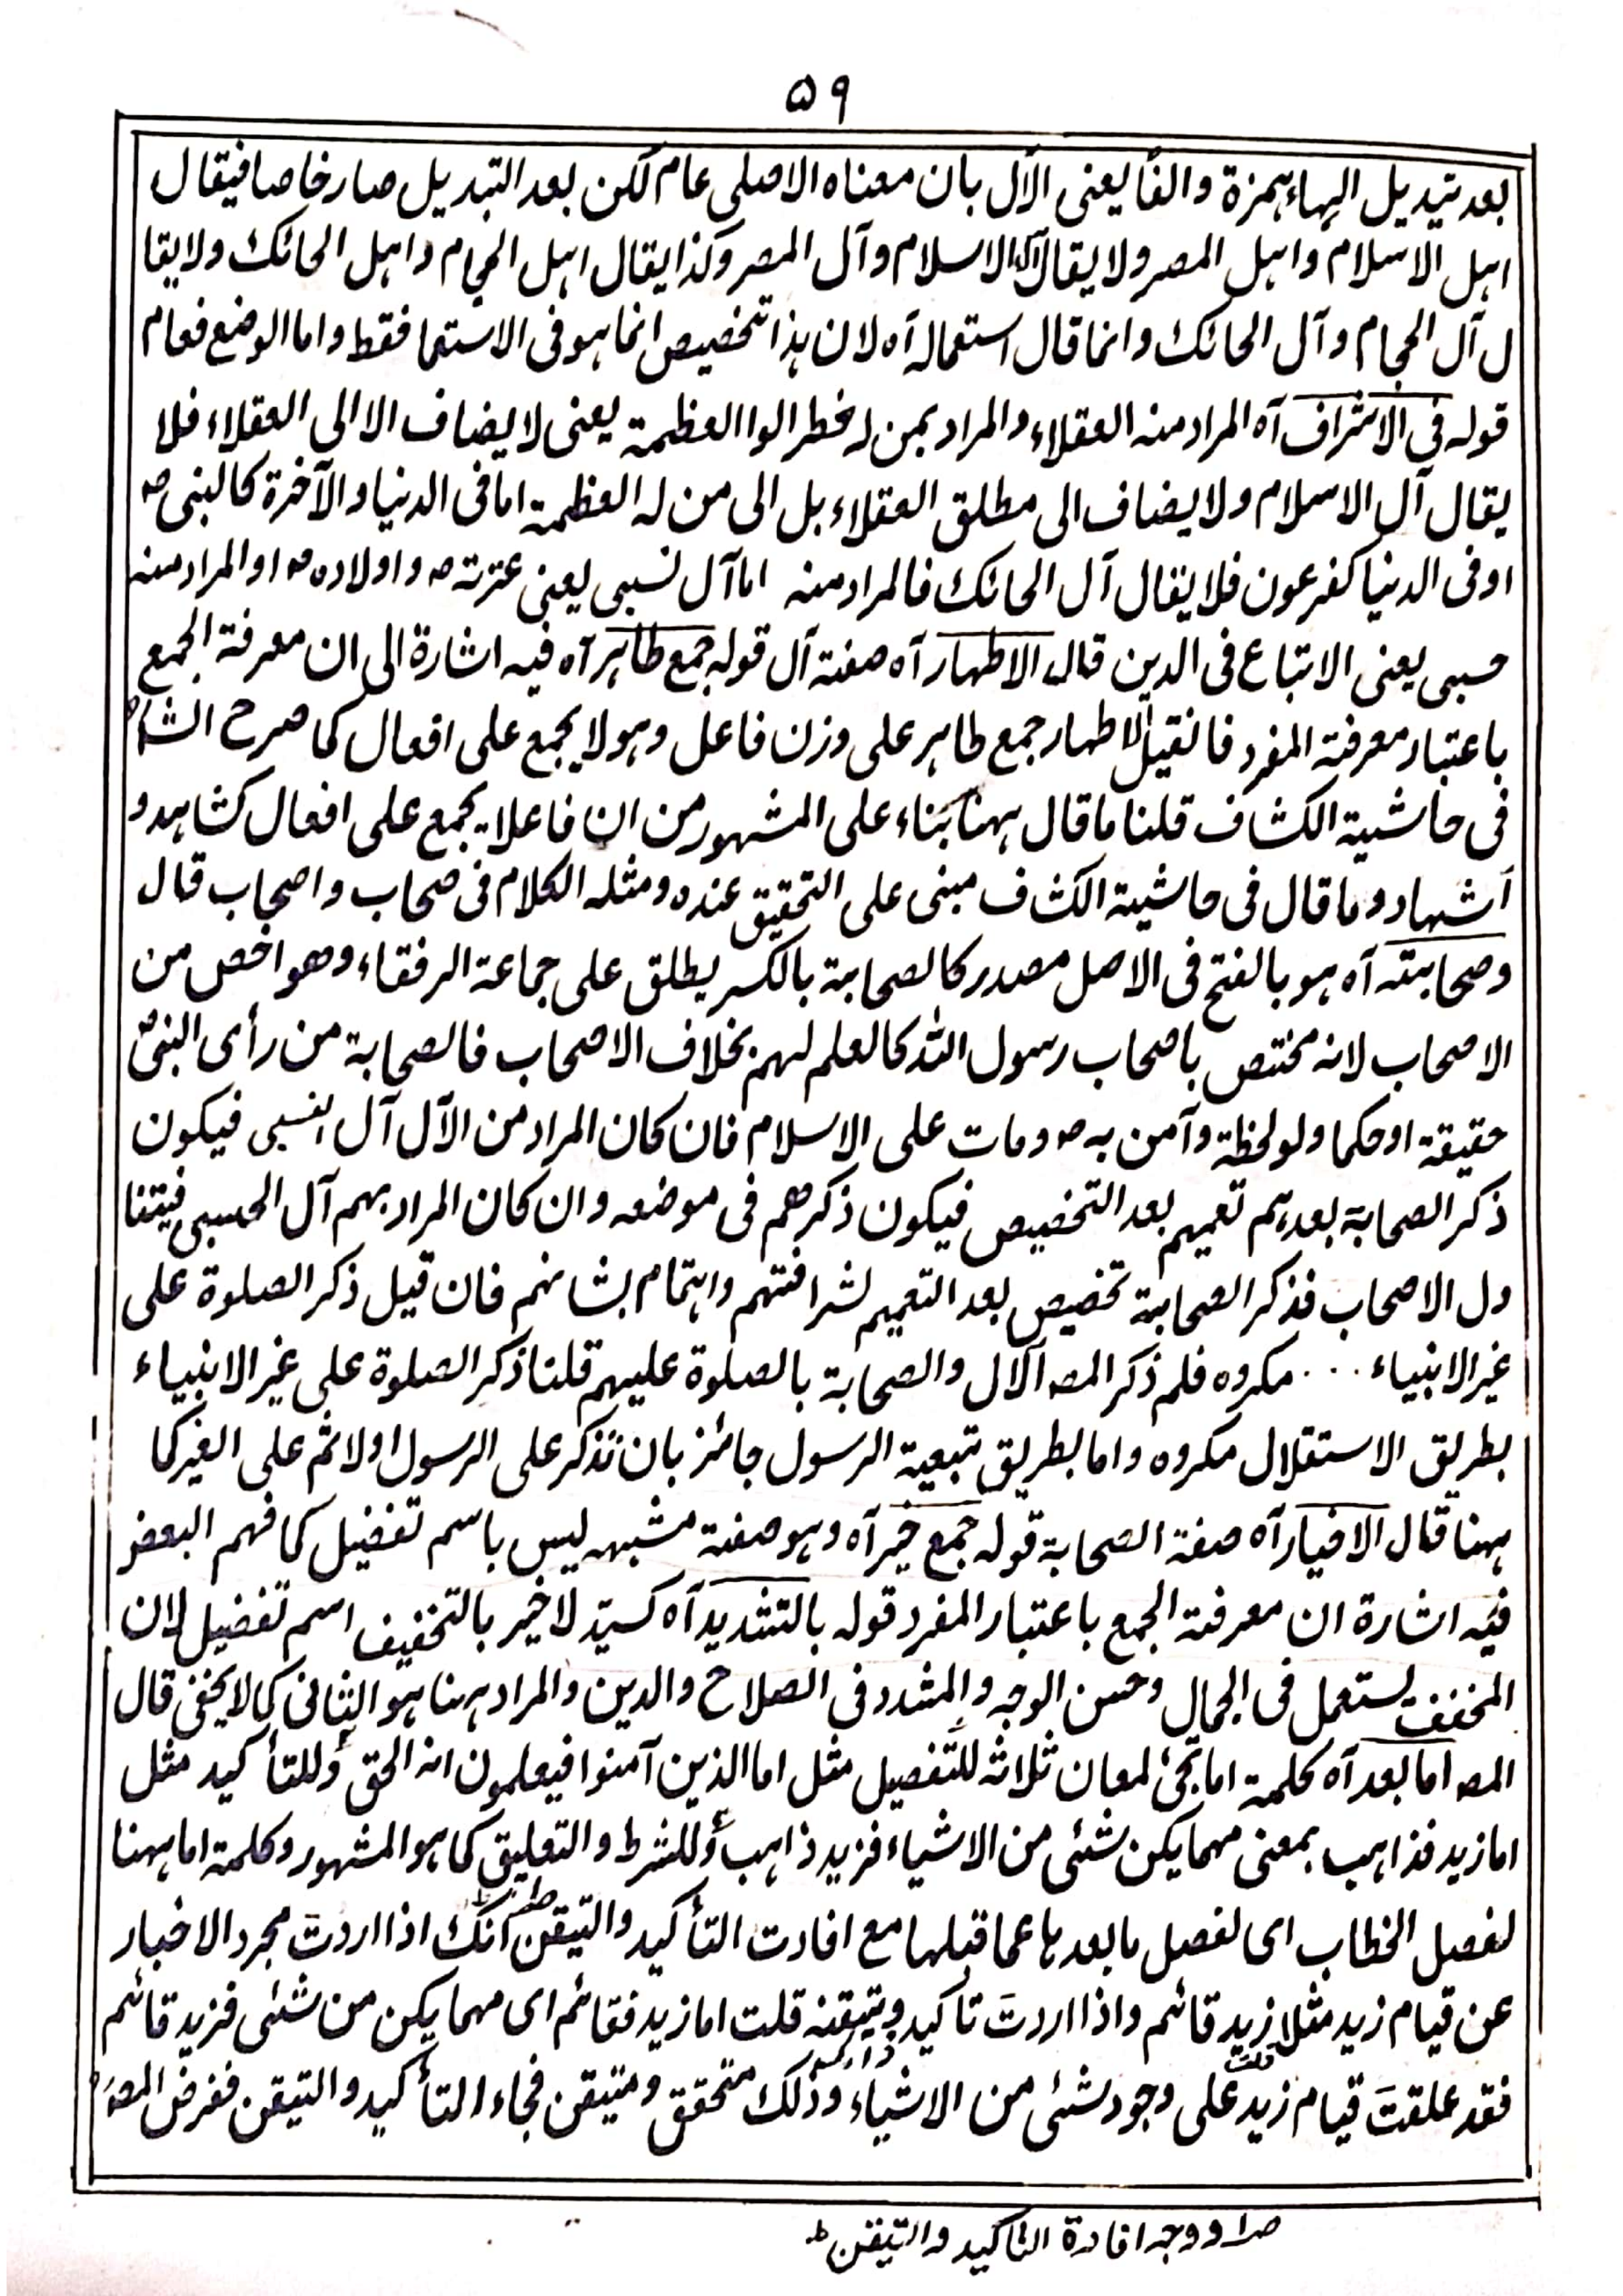 ٥٩
بعد تبديل الهاء بهمزة والفاً يعنى الآل بان معناه الاصلى عام لكن بعد التبديل صار خاصا فيقال
اهل الاسلام واهل المصر ولا يقال آل الاسلام وآل المصر وكذا يقال اهل الحجام واهل الحائك ولا يقا
ل آل الحجام وآل الحائك وانما قال استعماله آه لان هذا تخصيص انما هو فى الاستعما فقط واما الوضع فعام
قوله فى الاشراف آه المراد منه العقلاء والمراد بمن له خطر الوا العظمة يعنى لا يضاف الا الى العقلاء فلا
يقال آل الاسلام ولا يضاف الى مطلق العقلاء بل الى من له العظمة اما فى الدنيا والآخرة كالنبى ص
او فى الدنيا كفرعون فلا يقال آل الحائك فالمراد منه اما آل نسبى يعنى عترته ص واولاده ص او المراد منه
حسبى يعنى الاتباع فى الدين قال الاطهار آه صفة آل قوله جمع طاهر آه فيه اشارة الى ان معرفة الجمع
باعتبار معرفة المفرد فانقيل الاطهار جمع طاهر على وزن فاعل وهو لا يجمع على افعال كما صرح الشا
فى حاشية الكشاف قلنا ما قال ههنا بناء على المشهور من ان فاعلا يجمع على افعال كشاهد و
اشهاد وما قال فى حاشية الكشاف مبنى على التحقيق عنده ومثله الكلام فى صحاب واصحاب قال
وصحابته آه هو بالفتح فى الاصل مصدر كالصحابة بالكسر يطلق على جماعة الرفقاء وهو اخص من
الاصحاب لانه مختص باصحاب رسول الله كالعلم لهم بخلاف الاصحاب فالصحابة من رأى النبى ص
حقيقة او حكما ولو لحظة وآمن به ص ومات على الاسلام فان كان المراد من الآل آل النسبى فيكون
ذكر الصحابة بعدهم تعميم بعد التخصيص فيكون ذكرهم فى موضعه وان كان المراد بهم آل الحسبى فيتنا
ول الاصحاب فذكر الصحابة تخصيص بعد التعميم لشرافتهم واهتمام بشانهم فان قيل ذكر الصلوة على
غير الانبياء ... مكروه فلم ذكر المص الآل والصحابة بالصلوة عليهم قلنا ذكر الصلوة على غير الانبياء
بطريق الاستقلال مكروه واما بطريق تبعية الرسول جائز بان تذكر على الرسول اولا ثم على الغير كما
ههنا قال الاخيار آه صفة الصحابة قوله جمع خير آه وهو صفة مشبهه ليس باسم تفضيل كما فهم البعض
فيه اشارة ان معرفة الجمع باعتبار المفرد قوله بالتشديد آه كسيّد لا خير بالتخفيف اسم تفضيل لان
المخفف يستعمل فى الجمال وحسن الوجه والمشدد فى الصلاح والدين والمراد ههنا هو الثانى كما لا يخفى قال
المص اما بعد آه كلمة اما تجئ لمعان ثلاثة للتفصيل مثل اما الذين آمنوا فيعلمون انه الحق وللتأكيد مثل
اما زيد فذاهب بمعنى مهما يكن شئى من الاشياء فزيد ذاهب وللشرط والتعليق كما هو المشهور وكلمة اما ههنا
لفصل الخطاب اى لفصل ما بعدها عما قبلها مع افادت التأكيد والتيقن صا انك اذا اردت مجرد الاخبار
عن قيام زيد مثلا قلت زيد قائم واذا اردتَ تاكيده وتيقنه قلت اما زيد فقائم اى مهما يكن من شئى فزيد قائم
فقد علقتَ قيام زيد على وجود شئى من الاشياء وذلك متحقق ومتيقن فجاء التأكيد والتيقن فغرض المص
صا ووجه افادة التاكيد والتيقن